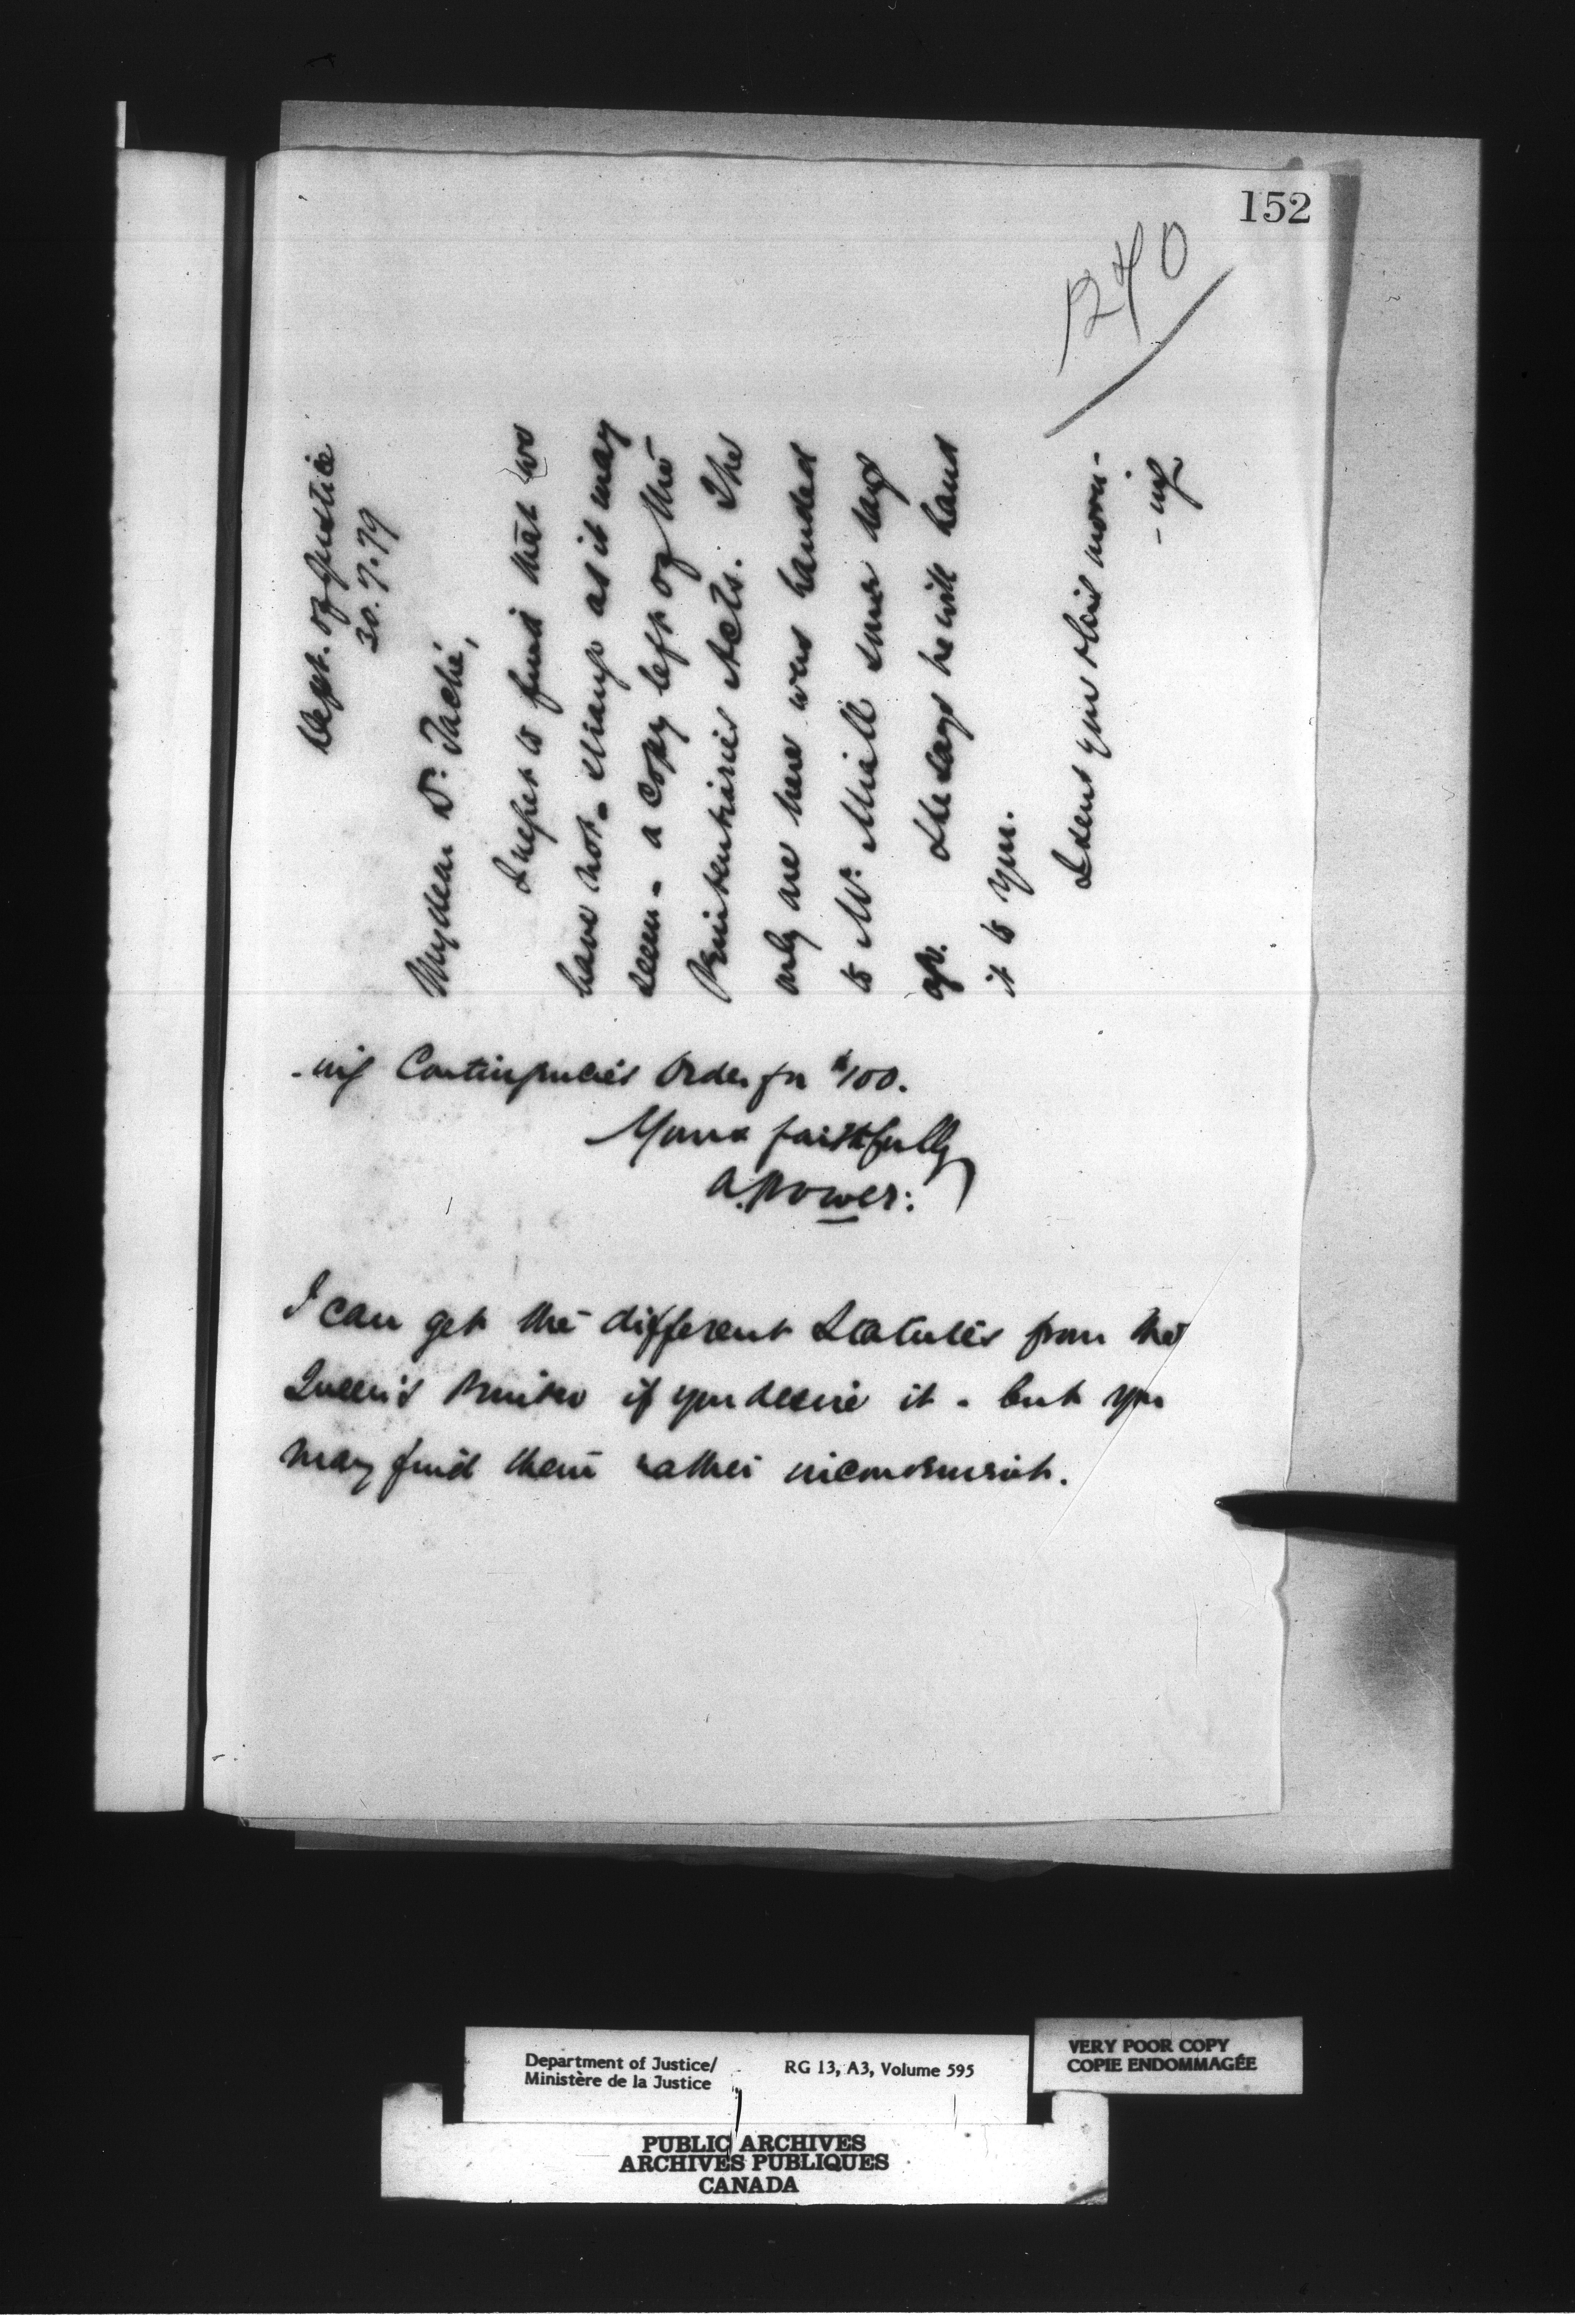 152
1240
Dept. of Justice
30.7.79
My dear Dr. Taché,
I regret to find that we
have not - strange as it may
seem - a copy left of the
Penitentiaries Acts. The
only one here was handed
to Mr. Miall some days
ago. He says he will hand
it to you.
I send you this morn-
- ing
- ing Contingencies Order for $100.
Yours faithfully
A. Power:
I can get the different Statutes from the
Queen's Printer if you desire it - but you
may find them rather inconvenient.
Department of Justice/
Ministère de la Justice
RG 13, A3, Volume 595
VERY POOR COPY
COPIE ENDOMMAGÉE
PUBLIC ARCHIVES
ARCHIVES PUBLIQUES
CANADA